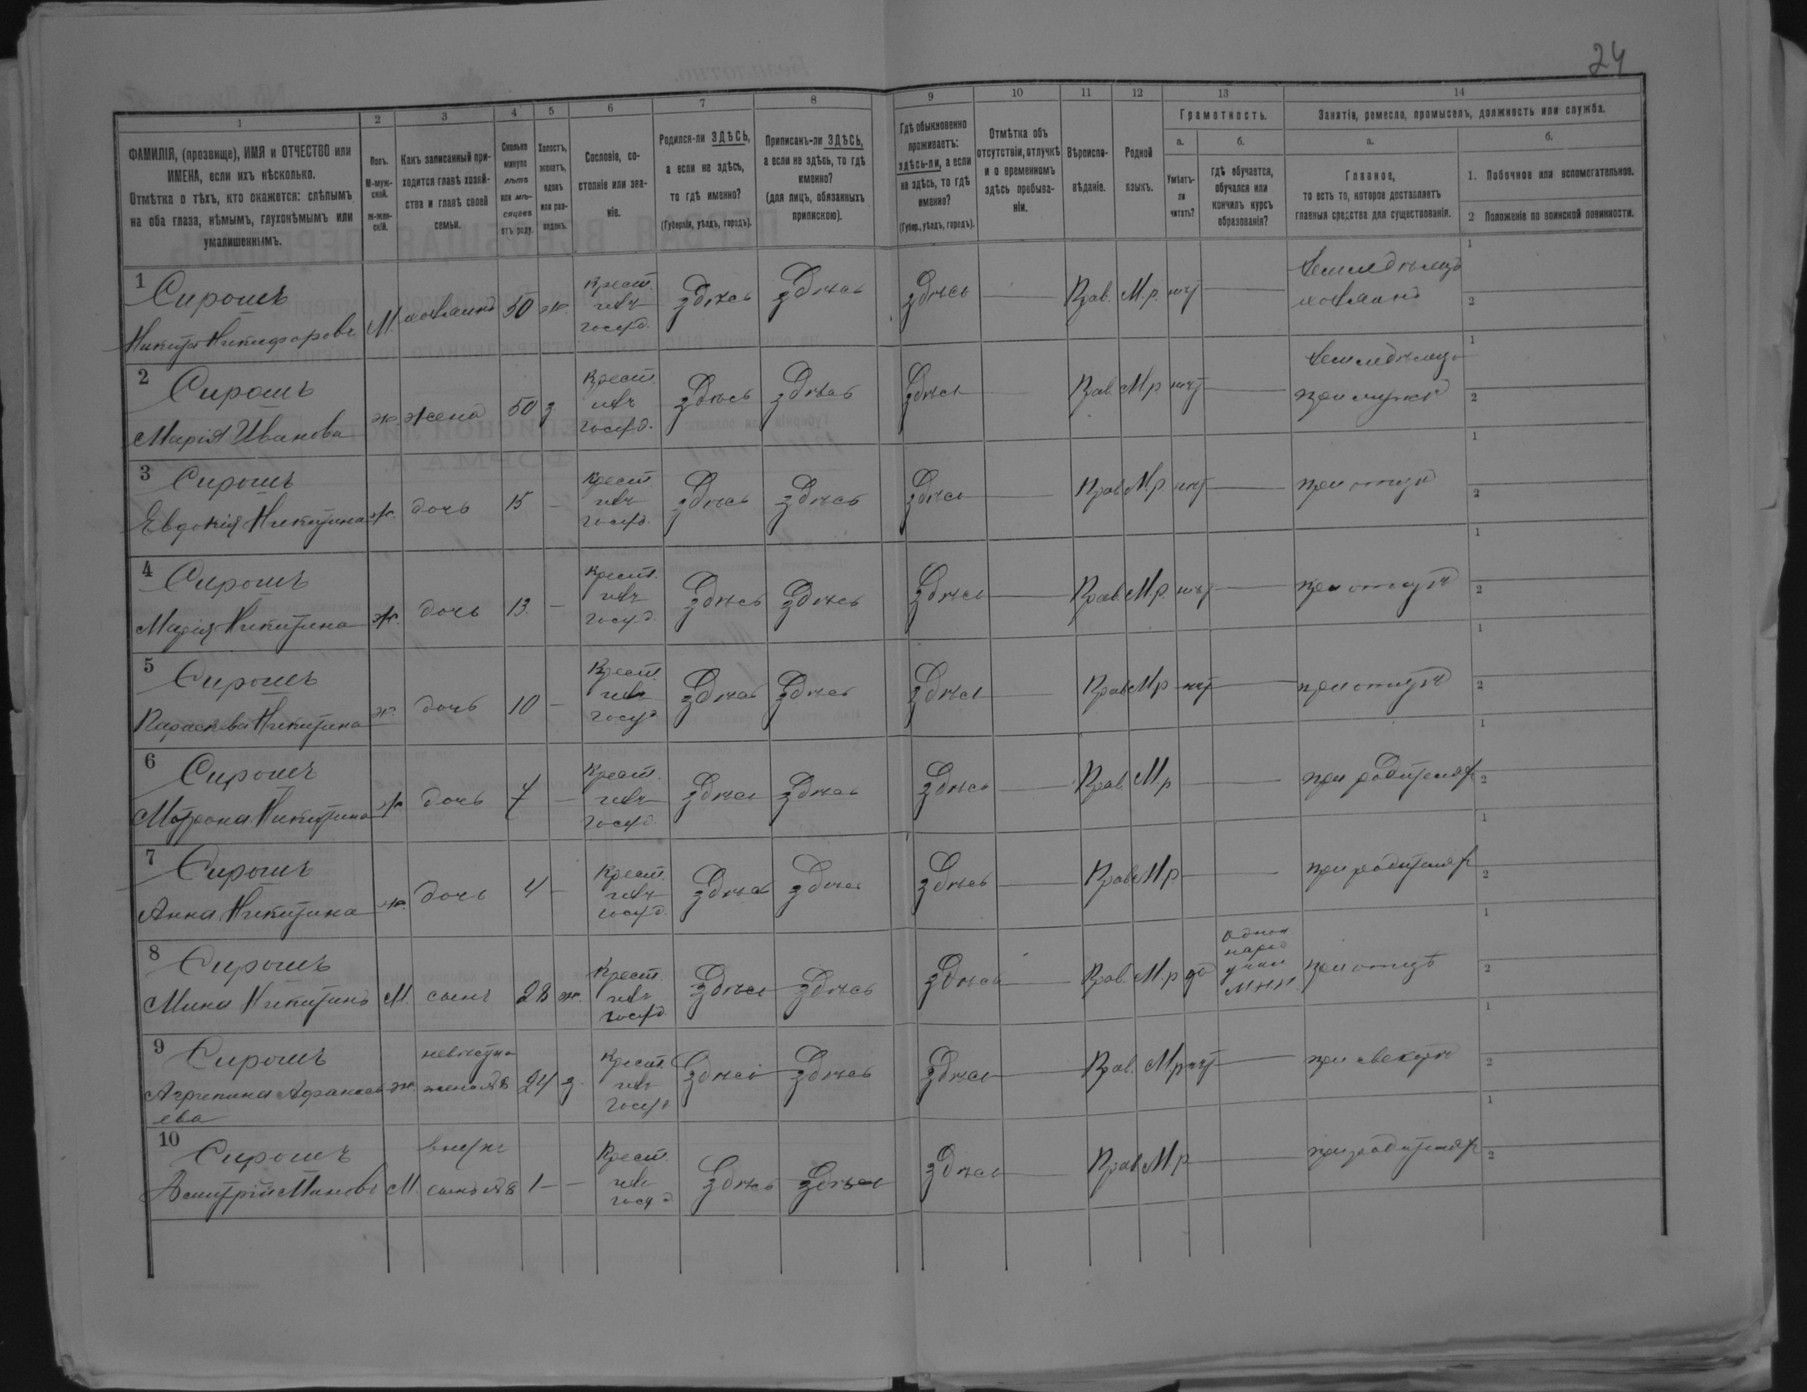 24
1 2 3 4 5 6 7 8 9 10 11 12 13 14
ФАМИЛІЯ, (прозвище), ИМЯ и ОТЧЕСТВО или ИМЕНА, если ихъ нѣсколько.
Отмѣтка о тѣхъ, кто окажется: слѣпымъ на оба глаза, нѣмымъ, глухонѣмымъ или умалишеннымъ.
Полъ. М-мужской. ж-женскій.
Какъ записанный приходится главѣ хозяйства и главѣ своей семьи.
Сколько минуло лѣтъ или мѣсяцевъ отъ роду.
Холостъ, женатъ, вдовъ или разведенъ.
Сословіе, состояніе или званіе.
Родился-ли ЗДѢСЬ, а если не здѣсь, то гдѣ именно?
(Губернія, уѣздъ, городъ).
Приписанъ-ли ЗДѢСЬ, а если не здѣсь, то гдѣ именно?
(для лицъ, обязанныхъ припискою).
Гдѣ обыкновенно проживаетъ: здѣсь-ли, а если не здѣсь, то гдѣ именно?
(Губер., уѣздъ, городъ).
Отмѣтка объ отсутствіи, отлучкѣ и о временномъ здѣсь пребываніи.
Вѣроисповѣданіе.
Родной языкъ.
Грамотность.
а.
Умѣетъ-ли читать?
б.
гдѣ обучается, обучался или кончилъ курсъ образованія?
Занятіе, ремесло, промыселъ, должность или служба.
а.
Главное,
то есть то, которое доставляетъ главныя средства для существованія.
б.
1. Побочное или вспомогательное.
2 Положеніе по воинской повинности.
1 Сирошъ Никита Никифоровъ М. хозяинъ 50 ж. Крест. изъ госуд. Здѣсь Здѣсь Здѣсь — Прав. М.р. нѣт — Земледѣлецъ хозяинъ 1 2
2 Сирошъ Марія Иванова ж. жена 50 з Крест. изъ госуд. Здѣсь Здѣсь Здѣсь — Прав. М.р нѣт — при мужѣ 1 2
3 Сирошъ Евдокія Никитина ж. дочь 15 — Крест изъ госуд. Здѣсь Здѣсь Здѣсь — Прав М.р нѣт — при отцѣ 1 2
4 Сирошъ Марія Никитина ж. дочь 13. — Крест. изъ госуд. Здѣсь Здѣсь Здѣсь — Прав М.р. нѣт — при отцѣ 1 2
5 Сирошъ Параскева Никитина ж. дочь 10 — Крест. изъ госуд Здѣсь Здѣсь Здѣсь — Прав М.р нѣт — при отцѣ 1 2
6 Сирошъ Мотрона Никитина ж. дочь 7 — Крест. изъ госуд. Здѣсь Здѣсь Здѣсь — Прав М.р — при родителях 1 2
7 Сирошъ Анна Никитина ж. дочь 4 — Крест. изъ госуд. Здѣсь Здѣсь Здѣсь — Прав М.р — при родителях 1 2
8 Сирошъ Мина Никитинъ М. сынъ 28 ж. Крест. изъ госуд Здѣсь Здѣсь Здѣсь — Прав. М.р да народ учил при отцѣ 1 2
9 Сирошъ Агрипина ева ж. невѣстка жена №8 24 з. Крест. изъ госуд Здѣсь Здѣсь Здѣсь — Прав. М.р нѣт — при свекрѣ 1 2
10 Сирошъ Дмитрій Миновъ М. внукъ сынъ №8 1 — — Крест. изъ госуд Здѣсь Здѣсь Здѣсь — Прав М.р — при родителях 1 2